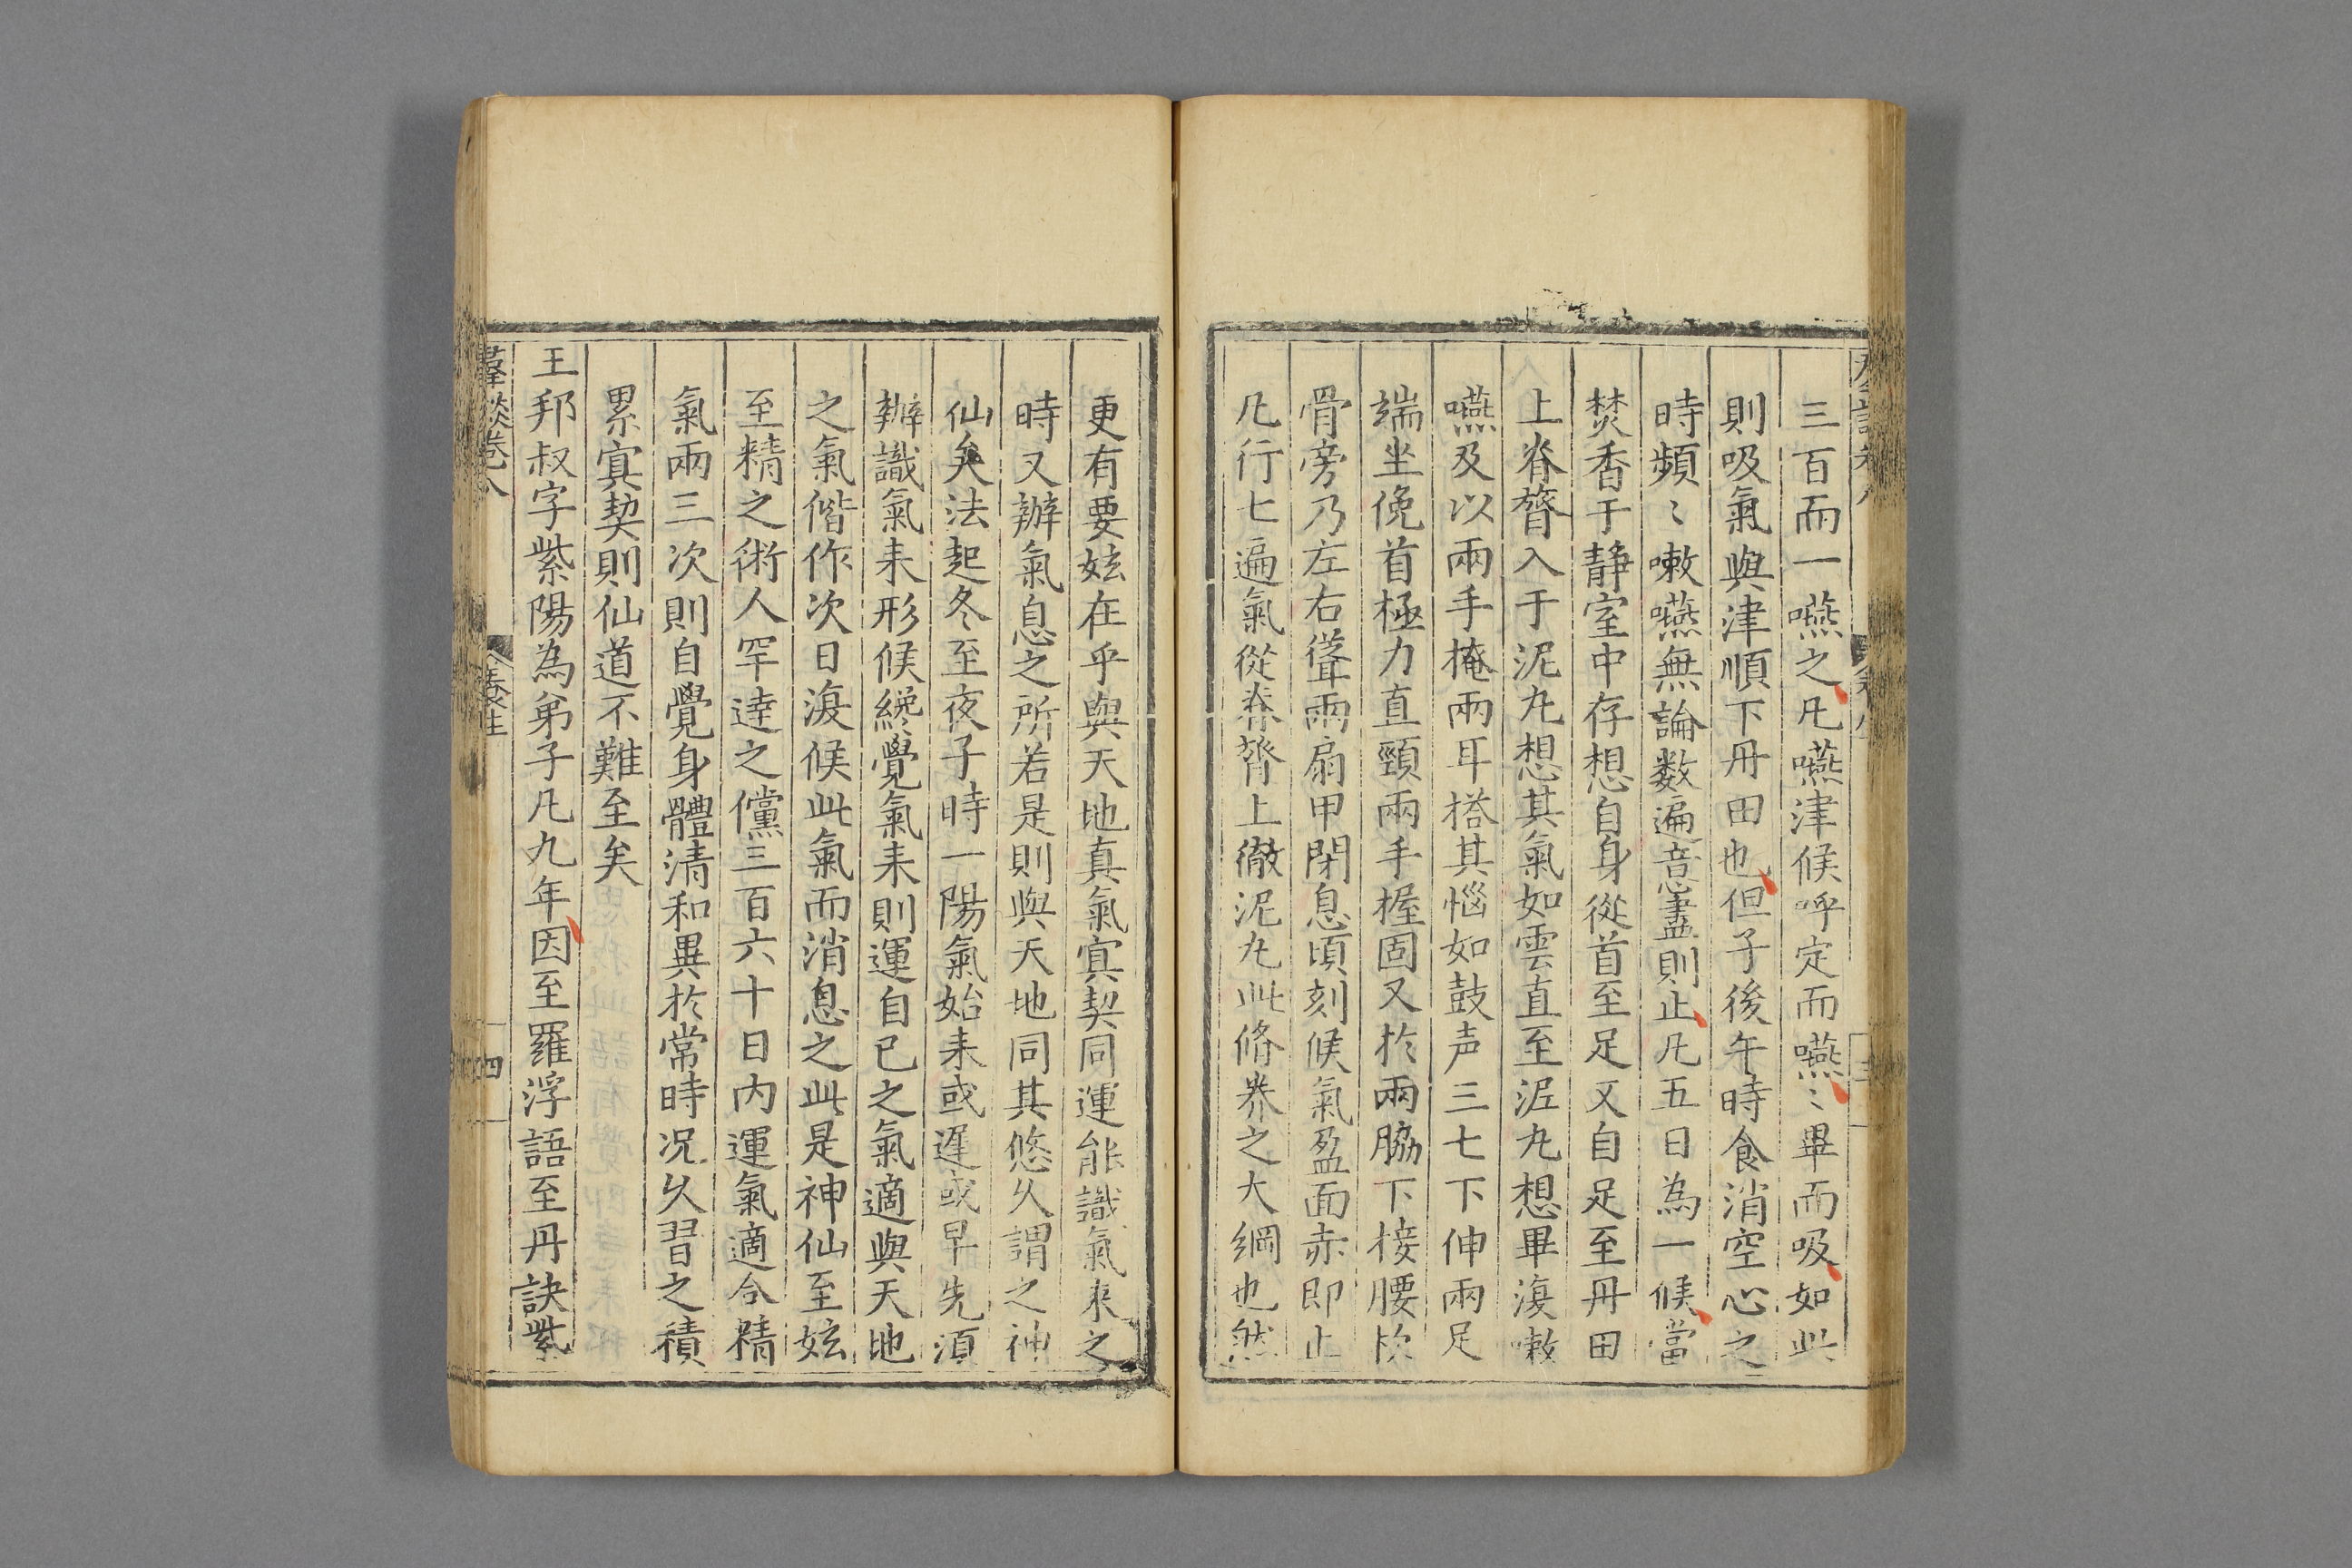 三百而一嚥之凡嚥津候呼定而嚥〻畢而吸如此
則吸氣與津順下丹田也但子後午時食消空心之
時頻〻嗽嚥無論数遍意盡則止凡五日為一候當
焚香于靜室中存想自身從首至足又自足至丹田
上脊膂入于泥丸想其氣如雲直至泥丸想畢復嗽
嚥及以兩手掩兩耳搭其惱如鼓声三七下伸兩足
端坐俛首極力直頸兩手握固又於兩脇下接腰胯
骨旁乃左右聳兩扇甲閉息頃刻候氣盈面赤即止
凡行七遍氣從脊膂上徹泥丸此脩养之大綱也然
更有要玅在乎與天地真氣冥契同運能識氣來之
時又辦氣息之所若是則與天地同其悠久謂之神
仙矣法起冬至夜子時一陽氣始来或遲或早先須
辦識氣来形候纔覺氣来則運自已之氣適與天地
之氣偕作次日復候此氣而消息之此是神仙至玅
至精之術人罕逹之儻三百六十日内運氣適合精
氣兩三次則自覺身體清和異於常時况久習之積
累冥契則仙道不難至矣
王邦叔字紫陽為弟子凡九年因至羅浮語至丹訣紫
羣談卷八
養生
四